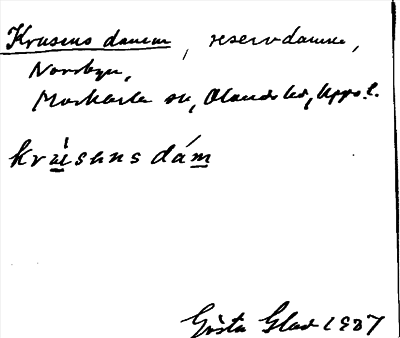 Krusens dammen, reservdamm,
Norrbyn,
Morkarla sn, Olands hd, Uppl.
kru̲sens dám̲
Gösta Glad 1937